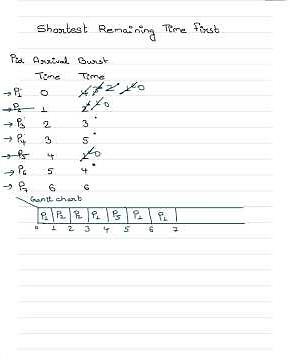 Shortest Remaining Time First
Pid Arrival Burst
Time Time
→ P1 0 4 3 2 1 0
→ P2 1 2 1 0
→ P3 2 3
→ P4 3 5
→ P5 4 1 0
→ P6 5 4
→ P7 6 6
Gantt chart
P1 P2 P2 P1 P5 P1 P1
0 1 2 3 4 5 6 7